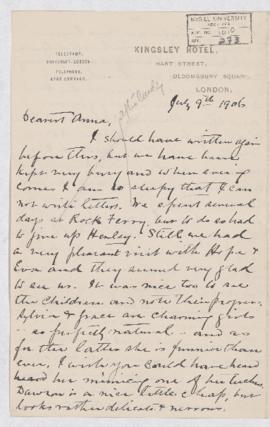 KINGSLEY HOTEL,
HART STREET,
BLOOMSBURY SQUARE,
LONDON.
TELEPHONE,
July 9th 1906
Dearest Anna,
I should have written again
before this, but we have been
kept very busy and when evening
comes I am so sleepy that I can
not write letters. We spent several
days at Rock Ferry, but to do so had
to give up Henley. Still we had
a very pleasant visit with Hope &
Eva and they seemed very glad
to see us. It was nice too to see
the children and note their progress.
Sylvia & Grace are charming girls
so perfectly natural - and as
for the latter she is funnier than
ever. I wish you could have heard
heard her mimicing one of her teachers.
Dawson is a nice little chap, but
looks rather delicate & nervous.